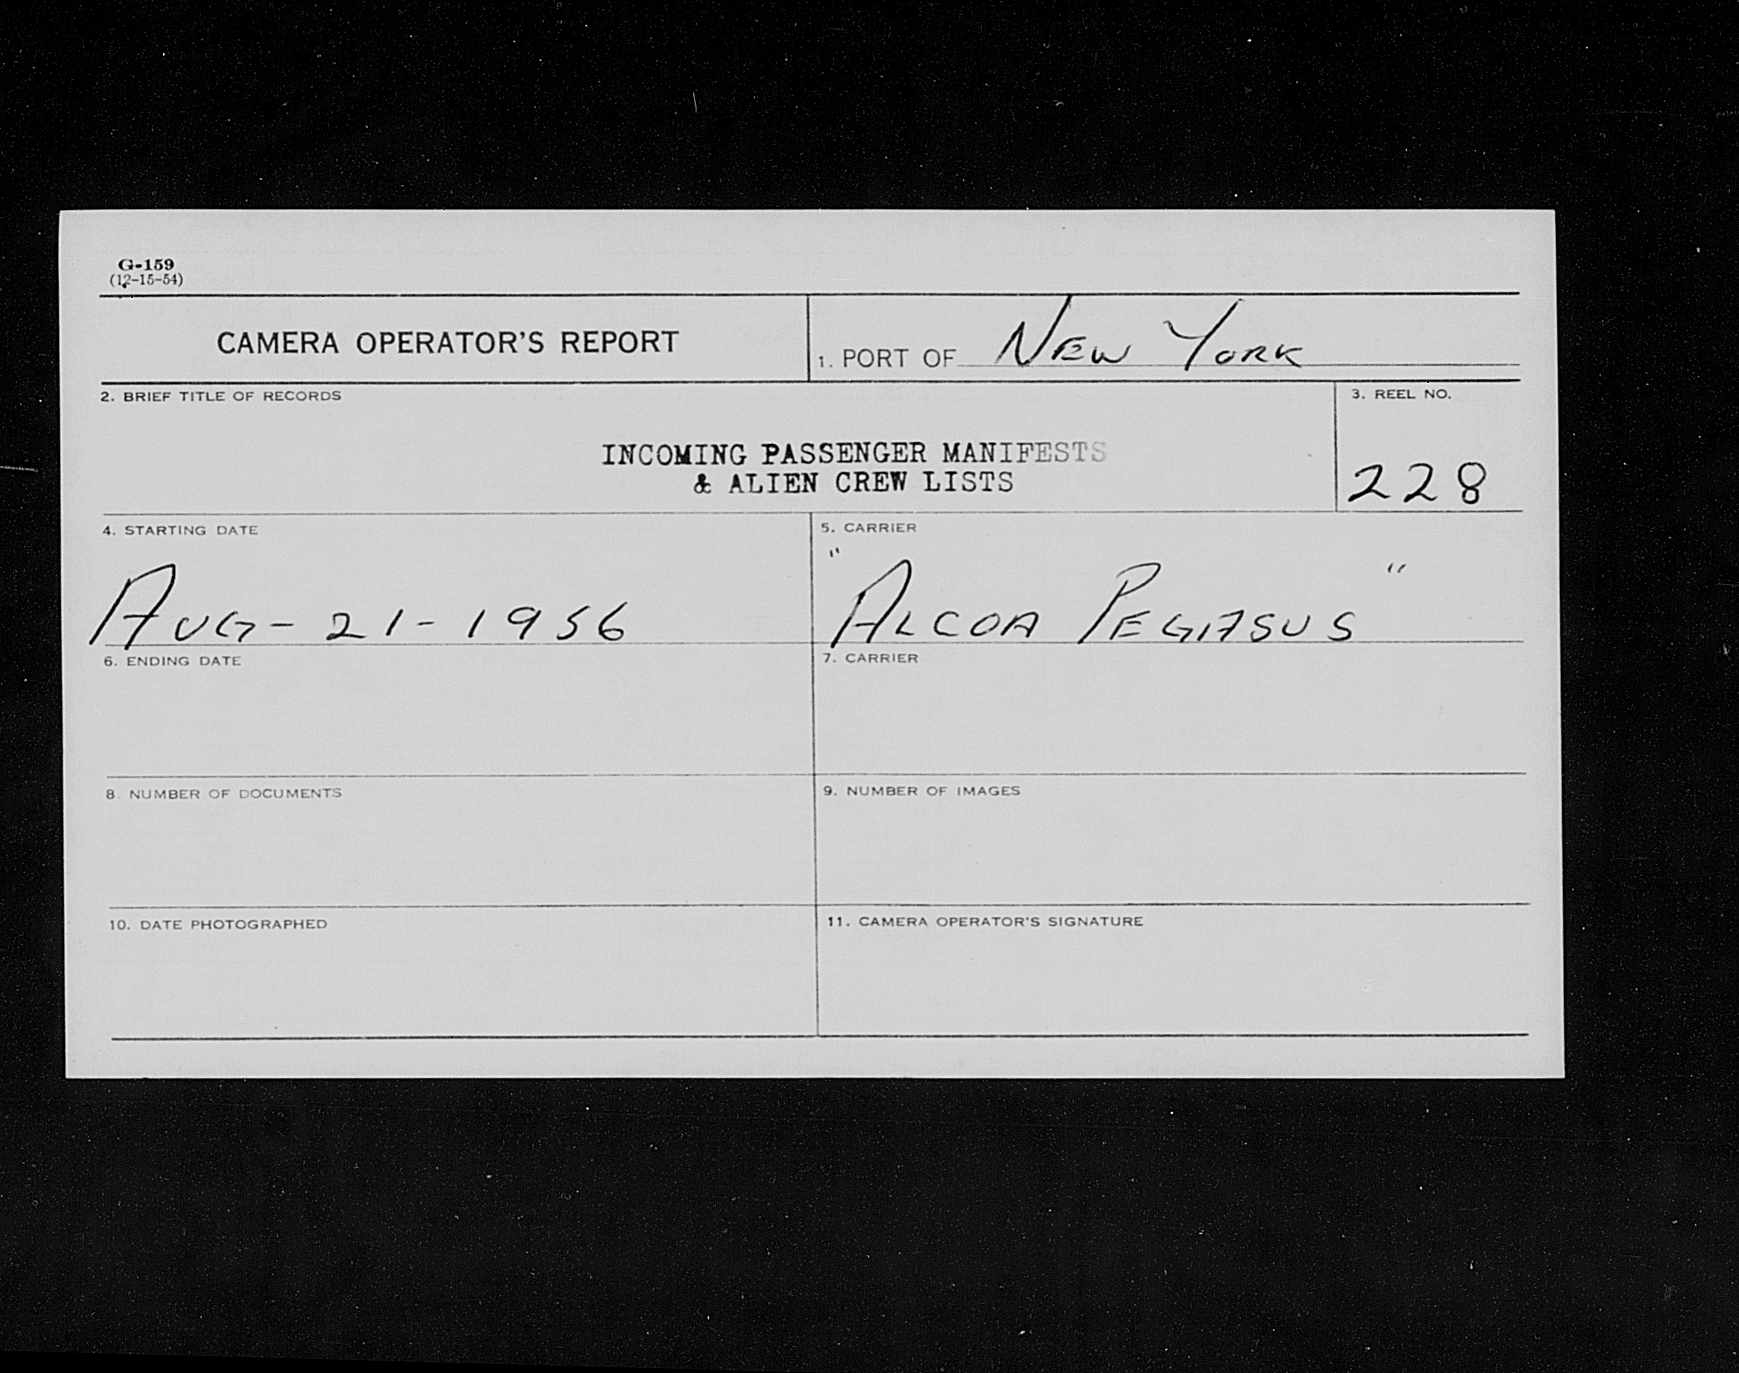 G-159
(12-15-54)
CAMERA OPERATOR'S REPORT
1. PORT OF NEW YORK
2. BRIEF TITLE OF RECORDS
INCOMING PASSENGER MANIFESTS
& ALIEN CREW LISTS
3. REEL NO.
228
4. STARTING DATE
AUG-21-1956
5. CARRIER
"ALCOA PEGASUS"
6. ENDING DATE
7. CARRIER
8. NUMBER OF DOCUMENTS
9. NUMBER OF IMAGES
10. DATE PHOTOGRAPHED
11. CAMERA OPERATOR'S SIGNATURE